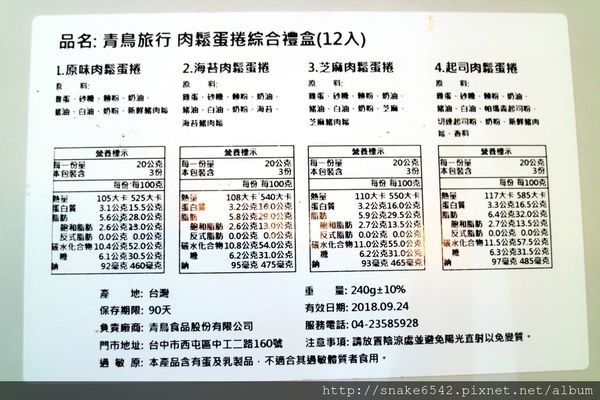 品名: 青鳥旅行 肉鬆蛋捲綜合禮盒(12入)
1.原味肉鬆蛋捲
原 料:
雞蛋、砂糖、麵粉、奶油、
豬油、白油、奶粉、新鮮豬肉鬆
營養標示
每一份量 20公克
本包裝含 3份
每份 每100克
熱量 105大卡 525大卡
蛋白質 3.1公克15.5公克
脂肪 5.6公克28.0公克
飽和脂肪 2.6公克13.0公克
反式脂肪 0.0公克0.0公克
碳水化合物10.4公克52.0公克
糖 6.1公克30.5公克
鈉 92毫克 460毫克
2.海苔肉鬆蛋捲
原 料:
雞蛋、砂糖、麵粉、奶油、
豬油、白油、奶粉、海苔、
海苔豬肉鬆
營養標示
每一份量 20公克
本包裝含 3份
每份 每100克
熱量 108大卡 540大卡
蛋白質 3.2公克16.0公克
脂肪 5.8公克29.0公克
飽和脂肪 2.6公克13.0公克
反式脂肪 0.0公克0.0公克
碳水化合物10.8公克54.0公克
糖 6.2公克31.0公克
鈉 95毫克 475毫克
3.芝麻肉鬆蛋捲
原 料:
雞蛋、砂糖、麵粉、奶油、
豬油、白油、奶粉、芝麻、
芝麻豬肉鬆
營養標示
每一份量 20公克
本包裝含 3份
每份 每100克
熱量 110大卡 550大卡
蛋白質 3.2公克16.0公克
脂肪 5.9公克29.5公克
飽和脂肪 2.7公克13.5公克
反式脂肪 0.0公克0.0公克
碳水化合物11.0公克55.0公克
糖 6.2公克31.0公克
鈉 93毫克 465毫克
4.起司肉鬆蛋捲
原 料:
雞蛋、砂糖、麵粉、奶油、
豬油、白油、帕瑪森起司粉、
切達起司粉、奶粉、新鮮豬肉
鬆、香料
營養標示
每一份量 20公克
本包裝含 3份
每份 每100克
熱量 117大卡 585大卡
蛋白質 3.3公克16.5公克
脂肪 6.4公克32.0公克
飽和脂肪 2.7公克13.5公克
反式脂肪 0.0公克0.0公克
碳水化合物11.5公克57.5公克
糖 6.3公克31.5公克
鈉 97毫克 485毫克
產 地: 台灣
保存期限: 90天
負責廠商: 青鳥食品股份有限公司
門市地址: 台中市西屯區中工二路160號
過 敏 原: 本產品含有蛋及乳製品，不適合其過敏體質者食用。
重 量: 240g±10%
有效日期: 2018.09.24
服務電話: 04-23585928
注意事項: 請放置陰涼處並避免陽光直射以免變質。
http://snake6542.pixnet.net/album